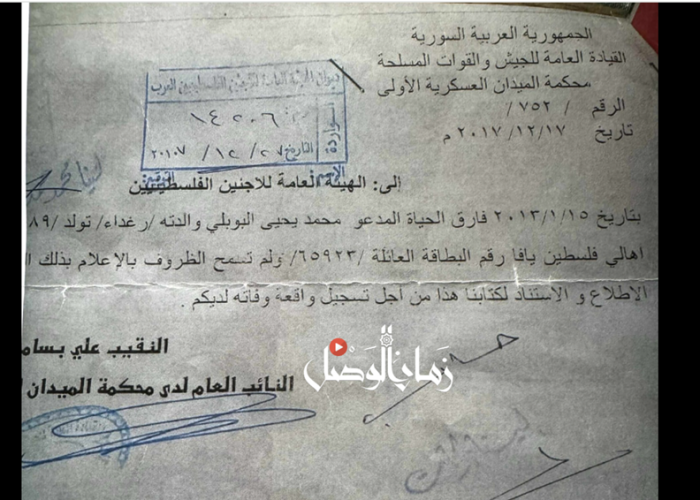 الجمهورية العربية السورية
القيادة العامة للجيش والقوات المسلحة
محكمة الميدان العسكرية الأولى
الرقم / ٧٥٢/
تاريخ ٢٠١٧/١٢/١٧ م
ديوان الهيئة العامة للاجئين الفلسطينيين العرب
الواردة
١٤٢٠٦
التاريخ ٢٧/ ١٢/ ٢٠١٠٧
إلى: الهيئة العامة للاجنين الفلسطينيين
بتاريخ ٢٠١٣/١/١٥ فارق الحياة المدعو محمد يحيى النوبلي والدته /رغداء/ تولد /٨٩
اهالي فلسطين يافا رقم البطاقة العائلة /٦٥٩٢٣/ ولم تسمح الظروف بالإعلام بذلك
الاطلاع و الاستناد لكتابنا هذا من أجل تسجيل واقعة وفاته لديكم .
النقيب علي بسام
النائب العام لدى محكمة الميدان
زمان الوصل